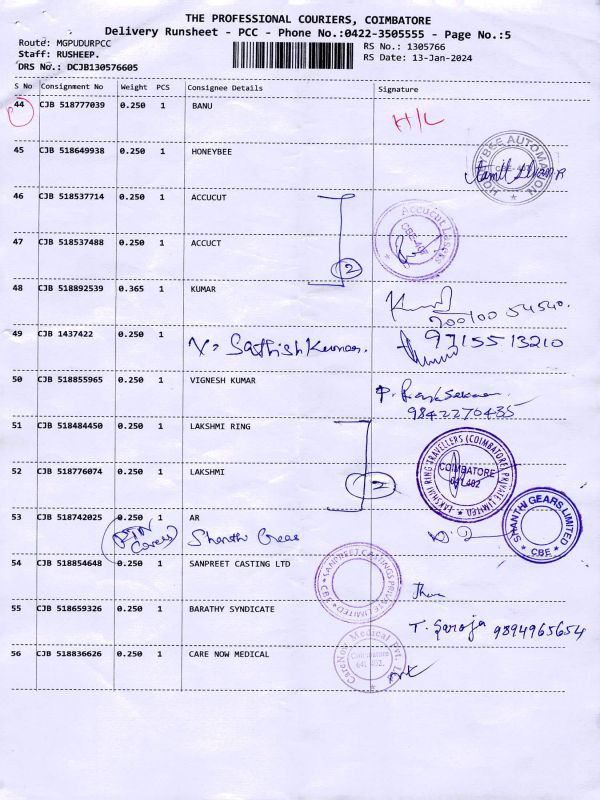 THE PROFESSIONAL COURIERS, COIMBATORE
Delivery Runsheet - PCC - Phone No.:0422-3505555 - Page No.:5
Route: MGPUDURPCC
Staff: RUSHEEP.
DRS No.: DCJB130576605
RS No.: 1305766
RS Date: 13-Jan-2024
S No Consignment No Weight PCS Consignee Details Signature
44 CJB 518777039 0.250 1 BANU H/L
45 CJB 518649938 0.250 1 HONEYBEE
HONEYBEE AUTOMATION
46 CJB 518537714 0.250 1 ACCUCUT
Accucut Lasers
47 CJB 518537488 0.250 1 ACCUCT
2
48 CJB 518892539 0.365 1 KUMAR
49 CJB 1437422 0.250 1 Sathish Kumar. 9715513210
50 CJB 518855965 0.250 1 VIGNESH KUMAR
9842270435
51 CJB 518484450 0.250 1 LAKSHMI RING
LAKSHMI RING TRAVELLERS (COIMBATORE) PRIVATE LIMITED
COIMBATORE
641 402
52 CJB 518776074 0.250 1 LAKSHMI
2
53 CJB 518742025 0.250 1 AR
Shanthi Gear
SHANTHI GEARS LIMITED
CBE
54 CJB 518854648 0.250 1 SANPREET CASTING LTD
SANPREET CASTINGS PRIVATE LIMITED
55 CJB 518659326 0.250 1 BARATHY SYNDICATE T. Saroja 9894965654
56 CJB 518836626 0.250 1 CARE NOW MEDICAL
CareNow Medical Pvt. Ltd
Coimbatore
641 402.